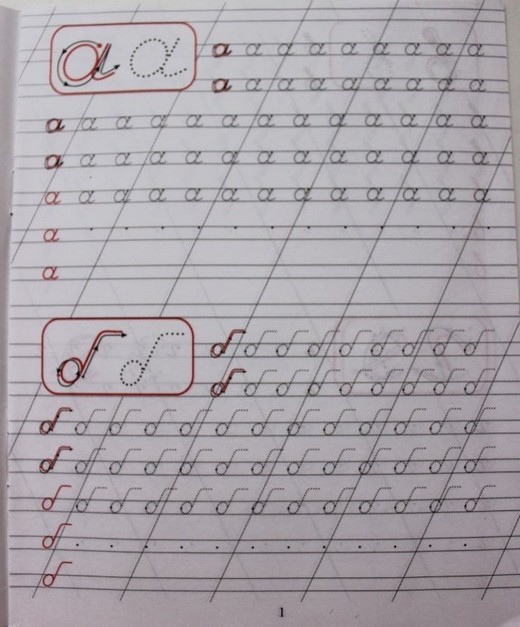 а а
а а а а а а а а а
а а а а а а а а а
а а а а а а а а а а а а а
а а а а а а а а а а а а а
а а а а а а а а а а а а а
а . . . . . . . . . . . .
а
б б
б б б б б б б б б
б б б б б б б б б
б б б б б б б б б б б б б
б б б б б б б б б б б б б
б б б б б б б б б б б б б
б . . . . . . . . . . . .
б
1